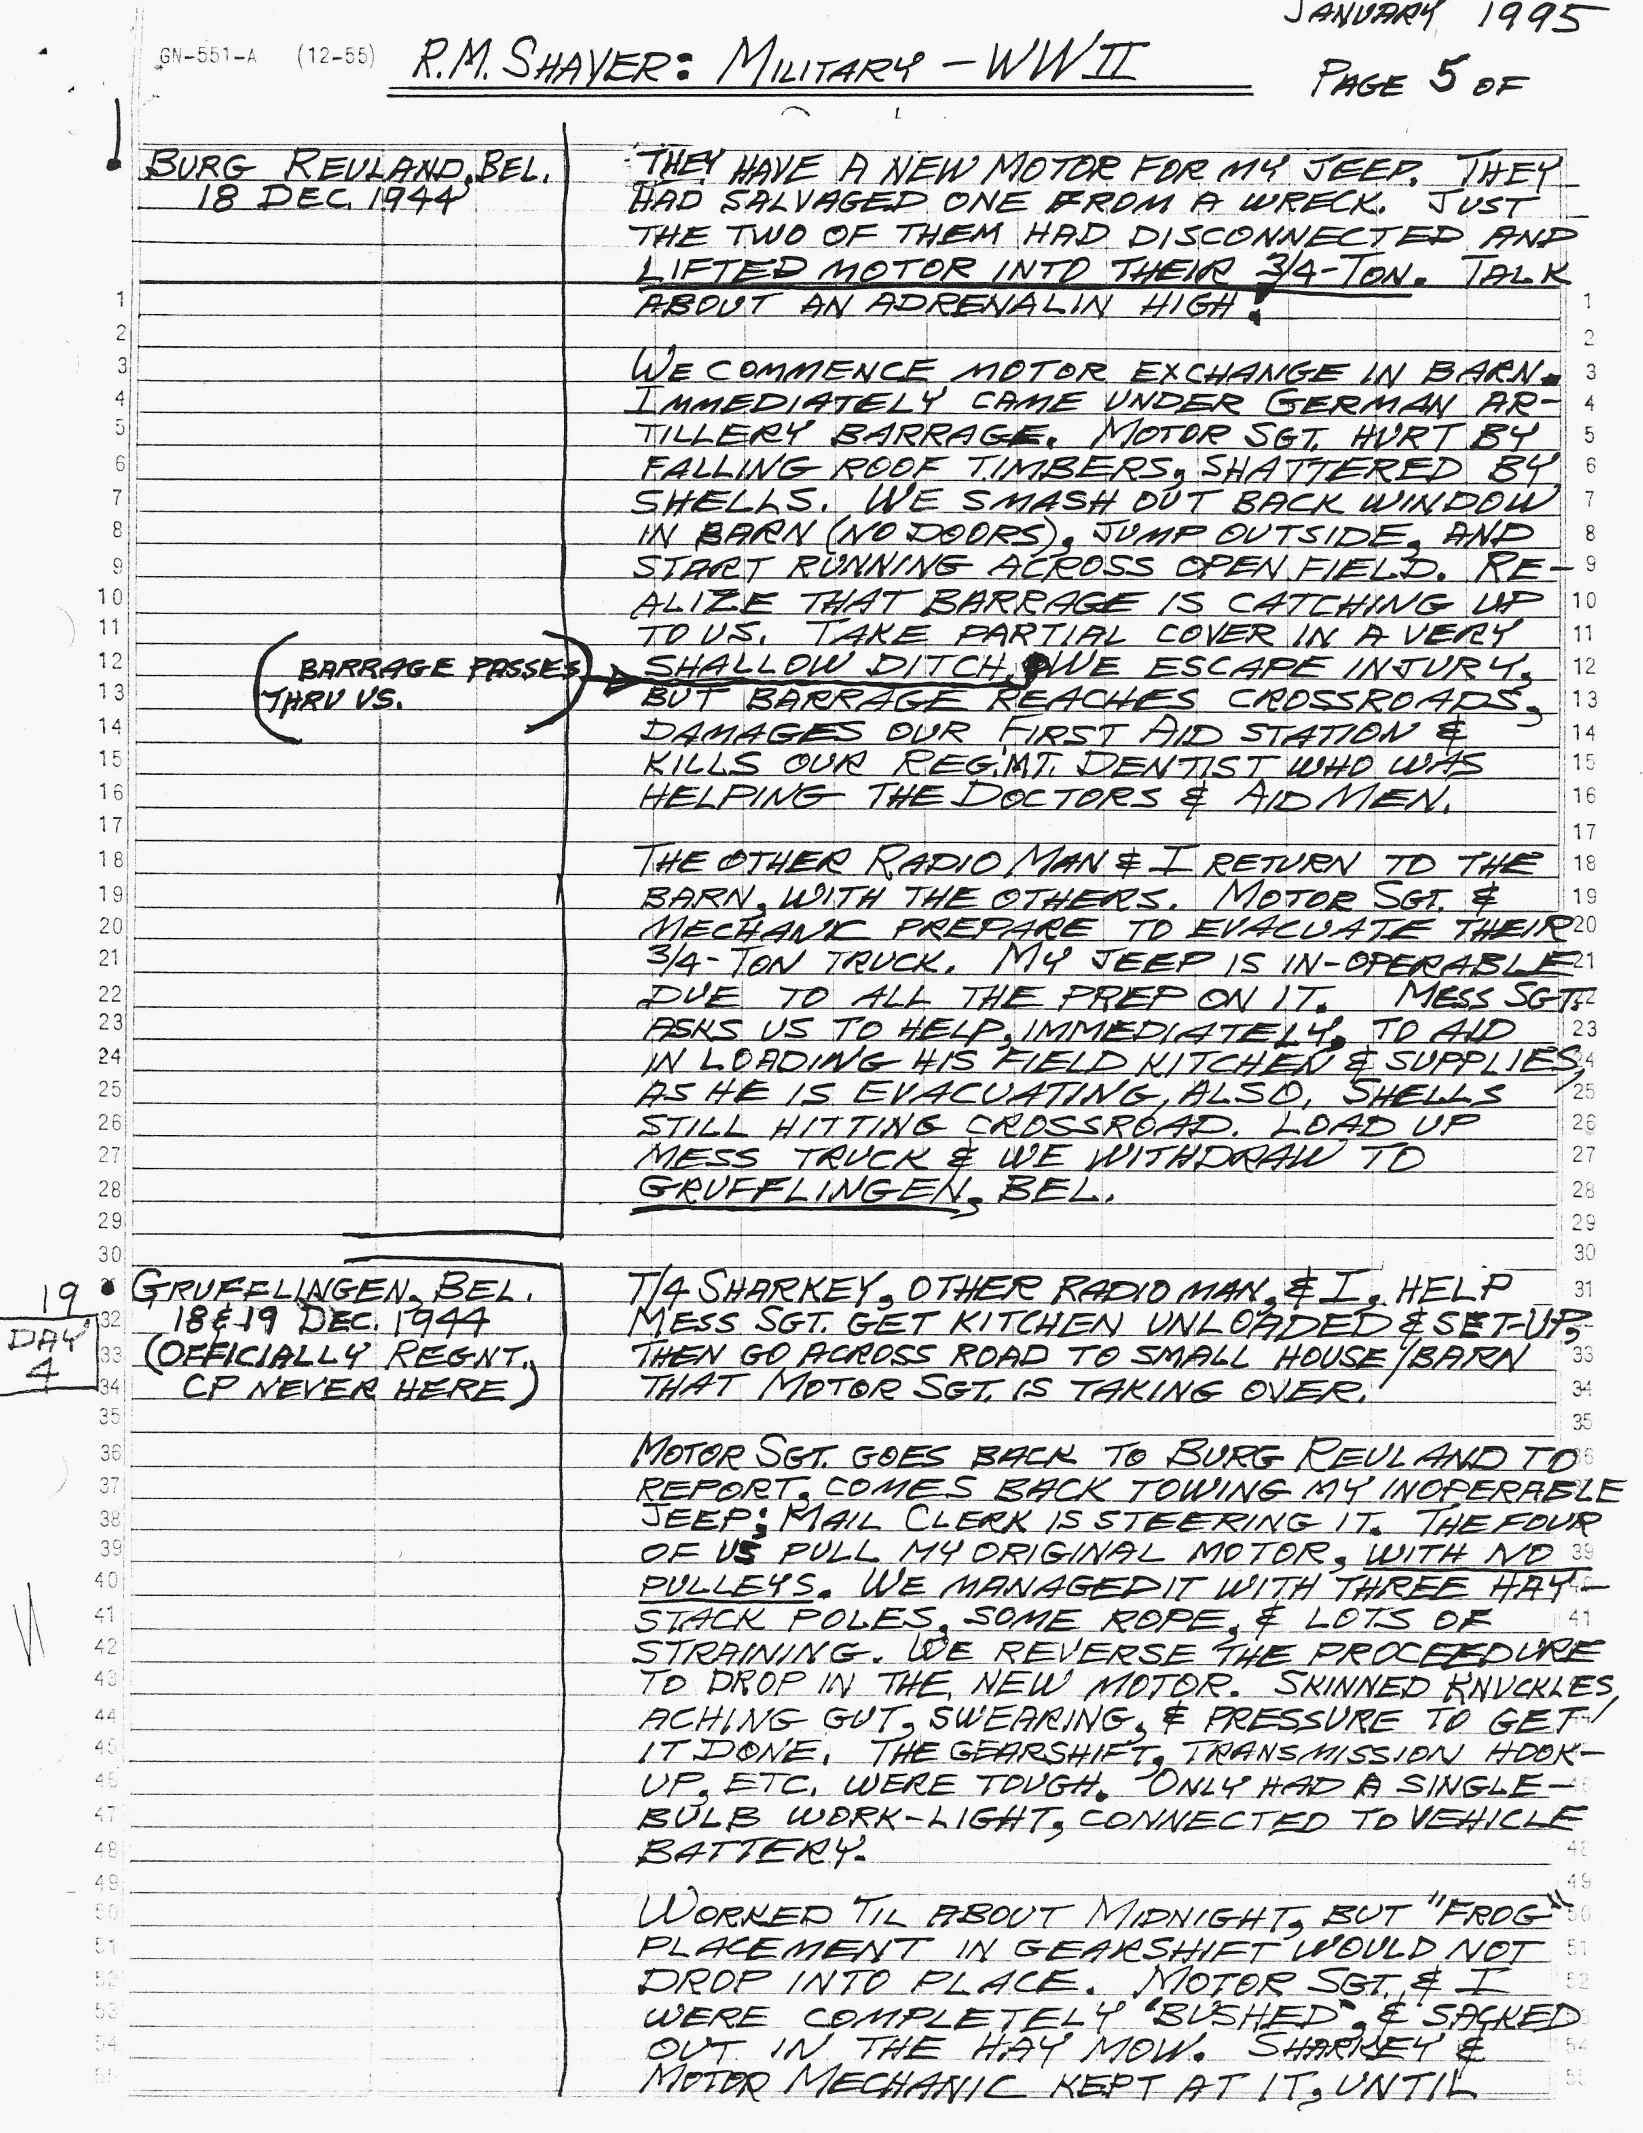 JANUARY 1995
GN-551-A (12-55)
R.M. SHAVER: MILITARY - WW II
PAGE 5 OF
BURG REULAND, BEL.
18 DEC. 1944
THEY HAVE A NEW MOTOR FOR MY JEEP. THEY
HAD SALVAGED ONE FROM A WRECK. JUST
THE TWO OF THEM HAD DISCONNECTED AND
LIFTED MOTOR INTO THEIR 3/4-TON. TALK
ABOUT AN ADRENALIN HIGH!
WE COMMENCE MOTOR EXCHANGE IN BARN.
IMMEDIATELY CAME UNDER GERMAN AR-
TILLERY BARRAGE. MOTOR SGT. HURT BY
FALLING ROOF TIMBERS, SHATTERED BY
SHELLS. WE SMASH OUT BACK WINDOW
IN BARN (NO DOORS), JUMP OUTSIDE, AND
START RUNNING ACROSS OPEN FIELD. RE-
ALIZE THAT BARRAGE IS CATCHING UP
TO US. TAKE PARTIAL COVER IN A VERY
(BARRAGE PASSES
THRU US.)
SHALLOW DITCH. WE ESCAPE INJURY,
BUT BARRAGE REACHES CROSSROADS,
DAMAGES OUR FIRST AID STATION &
KILLS OUR REG.MT. DENTIST WHO WAS
HELPING THE DOCTORS & AID MEN.
THE OTHER RADIO MAN & I RETURN TO THE
BARN, WITH THE OTHERS. MOTOR SGT. &
MECHANIC PREPARE TO EVACUATE THEIR
3/4-TON TRUCK. MY JEEP IS IN-OPERABLE
DUE TO ALL THE PREP ON IT. MESS SGT.
ASKS US TO HELP, IMMEDIATELY, TO AID
IN LOADING HIS FIELD KITCHEN & SUPPLIES,
AS HE IS EVACUATING, ALSO. SHELLS
STILL HITTING CROSSROAD. LOAD UP
MESS TRUCK & WE WITHDRAW TO
GRUFFLINGEN, BEL.
19
DAY
4
GRUFFLINGEN, BEL.
18 & 19 DEC. 1944
(OFFICIALLY REGNT.
CP NEVER HERE)
T/4 SHARKEY, OTHER RADIO MAN, & I, HELP
MESS SGT. GET KITCHEN UNLOADED & SET-UP,
THEN GO ACROSS ROAD TO SMALL HOUSE/BARN
THAT MOTOR SGT. IS TAKING OVER.
MOTOR SGT. GOES BACK TO BURG REULAND TO
REPORT. COMES BACK TOWING MY INOPERABLE
JEEP; MAIL CLERK IS STEERING IT. THE FOUR
OF US PULL MY ORIGINAL MOTOR, WITH NO
PULLEYS. WE MANAGED IT WITH THREE HAY-
STACK POLES, SOME ROPE, & LOTS OF
STRAINING. WE REVERSE THE PROCEEDURE
TO DROP IN THE NEW MOTOR. SKINNED KNUCKLES,
ACHING GUT, SWEARING, & PRESSURE TO GET
IT DONE. THE GEARSHIFT, TRANSMISSION HOOK-
UP, ETC. WERE TOUGH. ONLY HAD A SINGLE-
BULB WORK-LIGHT, CONNECTED TO VEHICLE
BATTERY.
WORKED TIL ABOUT MIDNIGHT, BUT "FROG"
PLACEMENT IN GEARSHIFT WOULD NOT
DROP INTO PLACE. MOTOR SGT. & I
WERE COMPLETELY "BUSHED", & SACKED
OUT IN THE HAY MOW. SHARKEY &
MOTOR MECHANIC KEPT AT IT, UNTIL